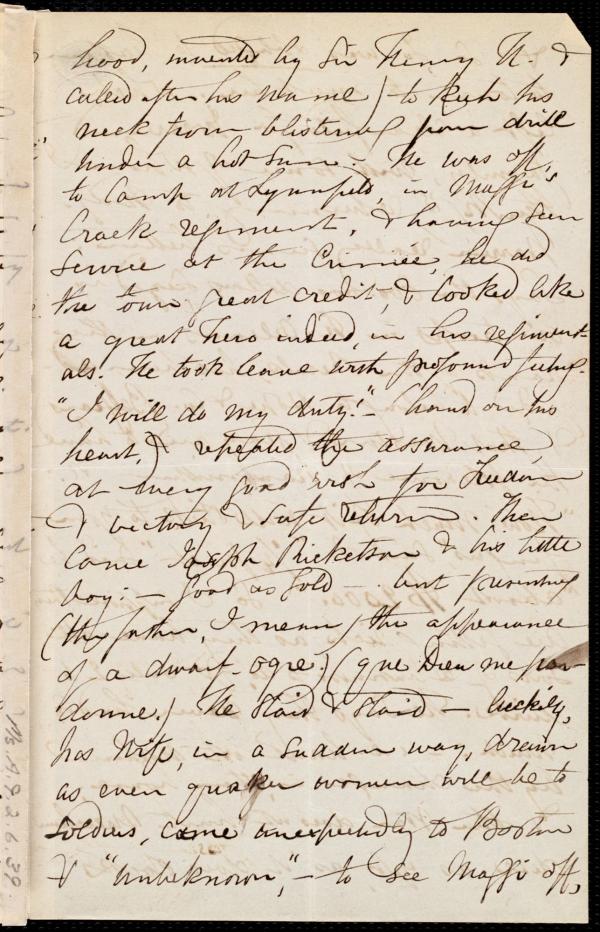 hood, invented by Sir Henry H. &
called after his name) to keep his
neck from blistering from drill
under a hot sun. - He was off,
to Camp at Lynnfield, in Maggi's
Crack regiment, & having seen
service at the Crimea, he did
the town great credit, & looked like
a great hero indeed, in his regiment-
als. He took leave with profound feeling.
"I will do my duty!" - (hand on his
heart,) & repeated the assurance,
at every good wish for Freedom
& victory & safe return. Then
came Joseph Ricketson & his little
boy: - good as gold - but presenting
(the father, I mean) the appearance
of a dwarf-ogre) (que Dieu me par-
donne.) He staid & staid - luckily,
his Wife, in a sudden way, drawn
as even quaker women will be to
soldiers, came unexpectedly to Boston
& "unbeknown", - to see Maggi off,
Ms.A.9.2.6.39